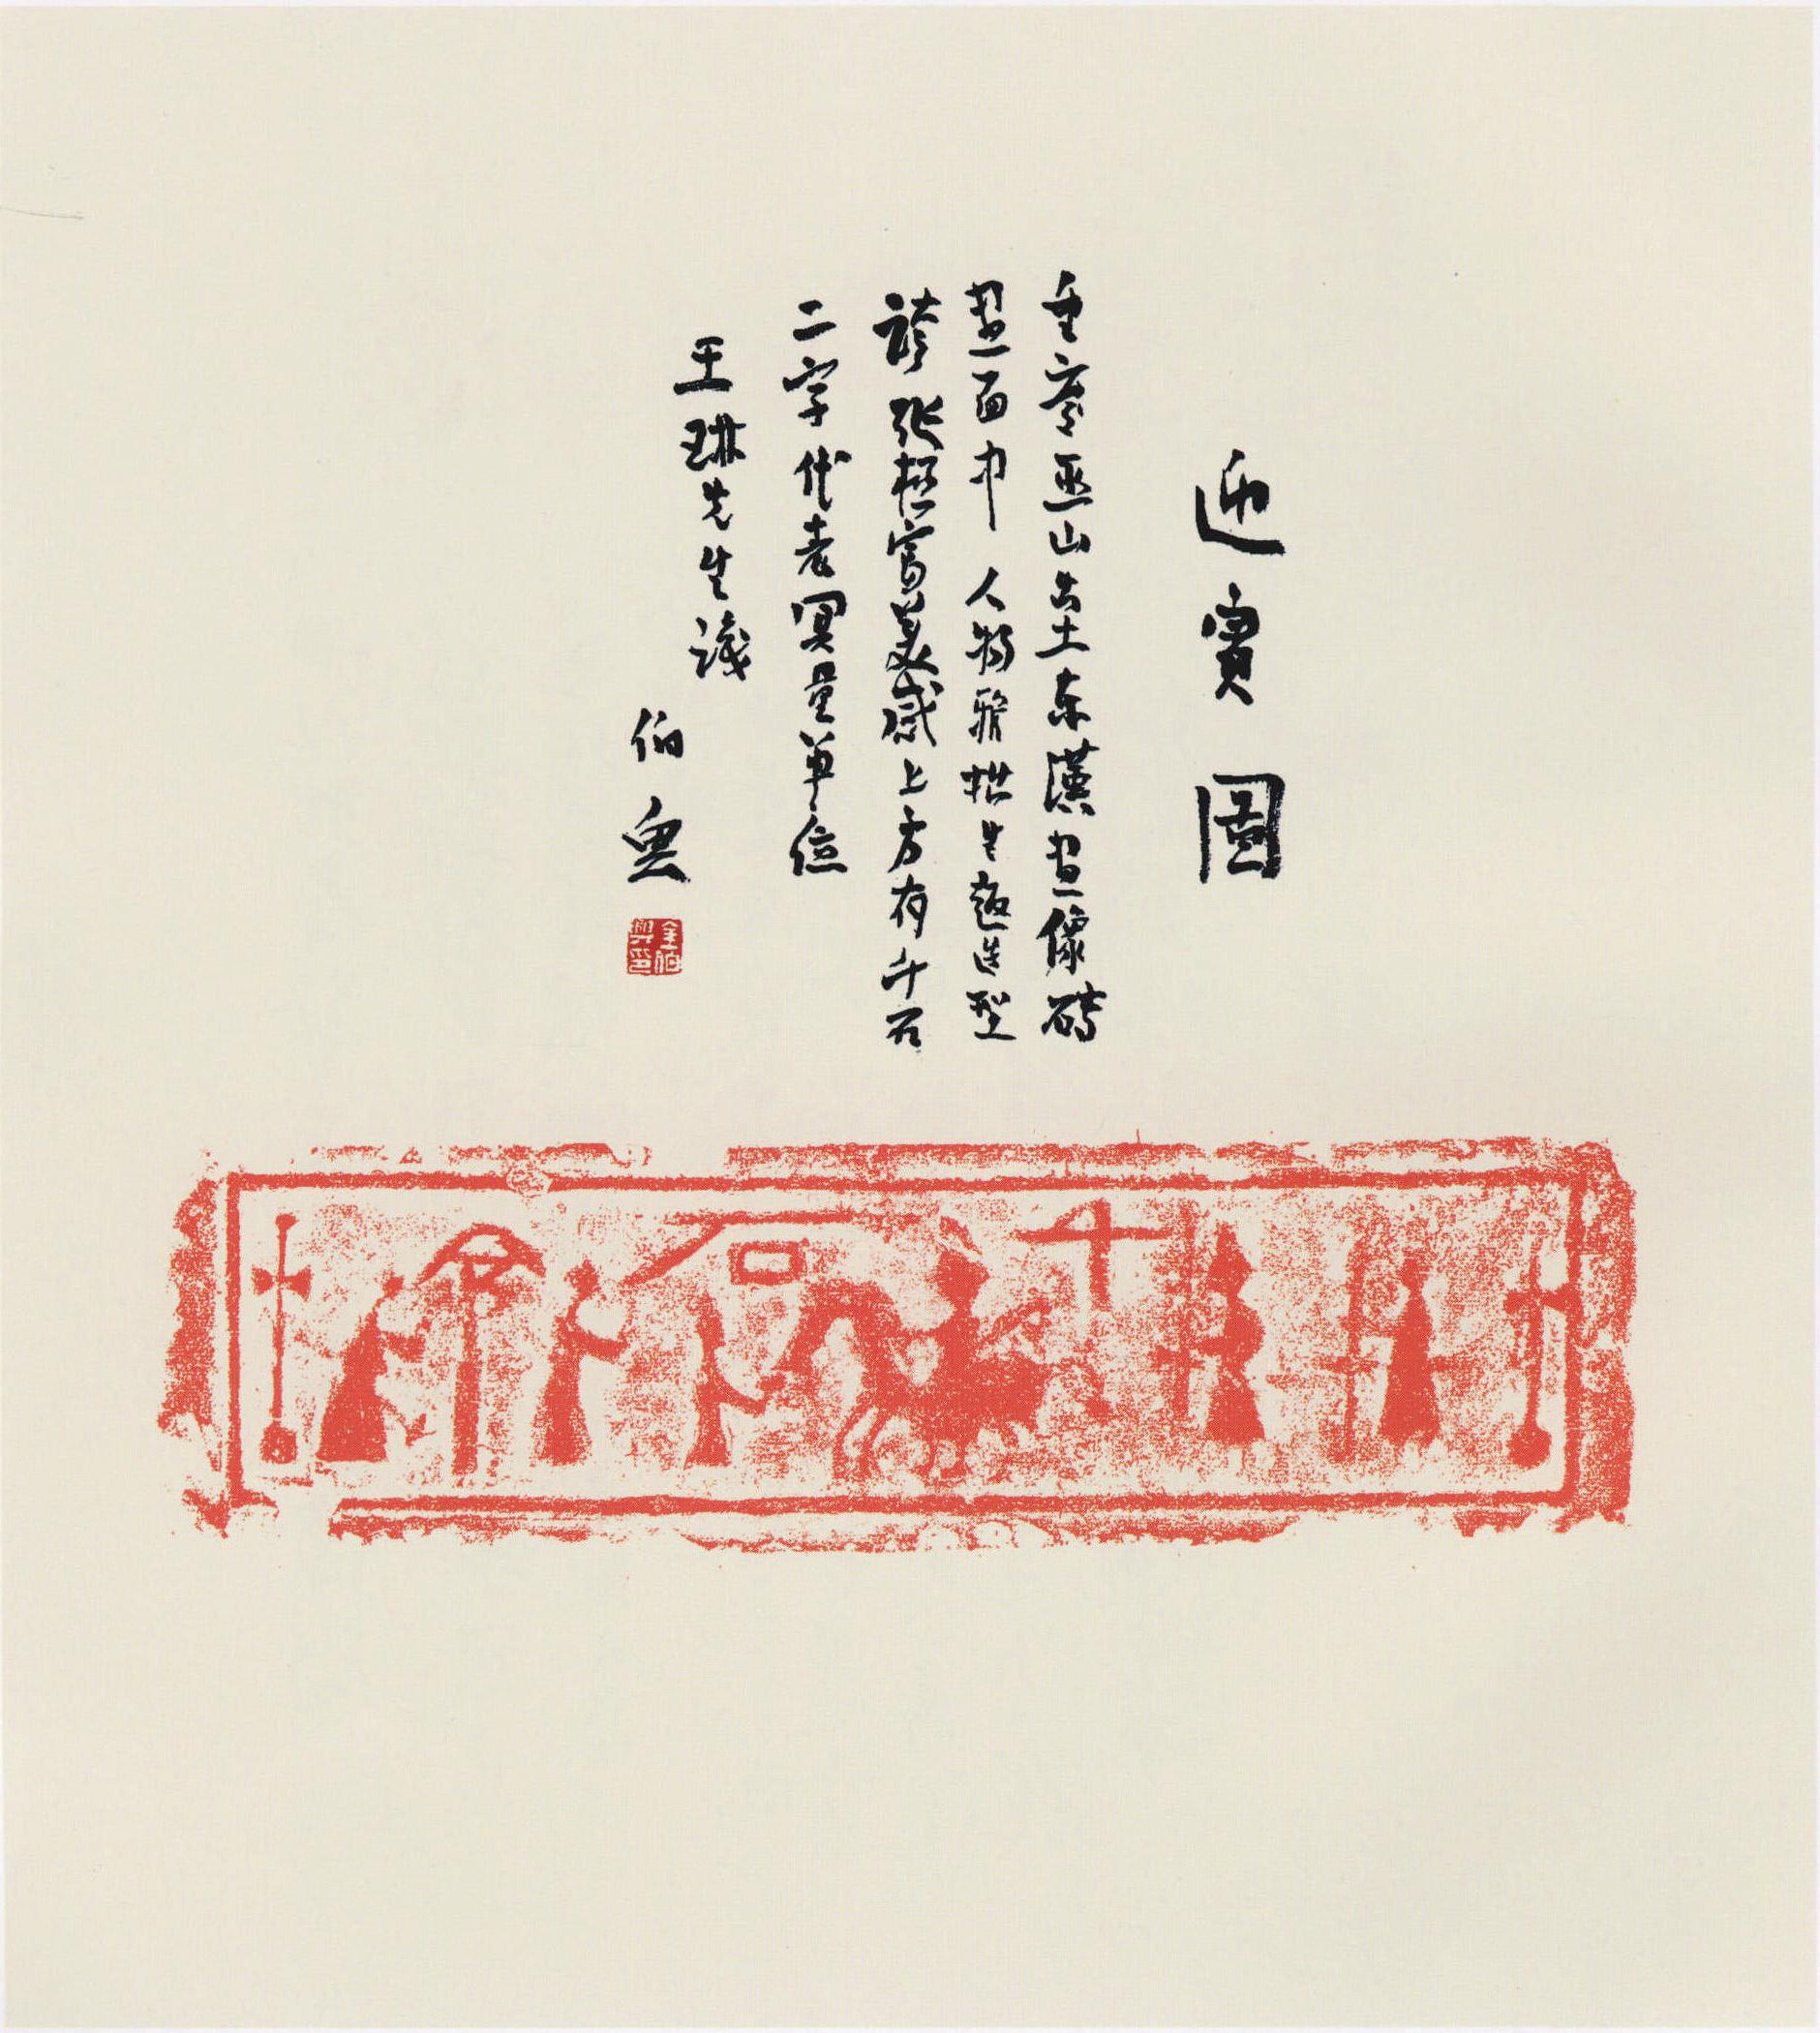 迎賓圖
重慶巫山出土东漢畫像磚
畫面中人物雅拙生趣造型
誇張極富美感上方有千石
二字代表量單位
王琳先生識
伯興
金伯興印
千石